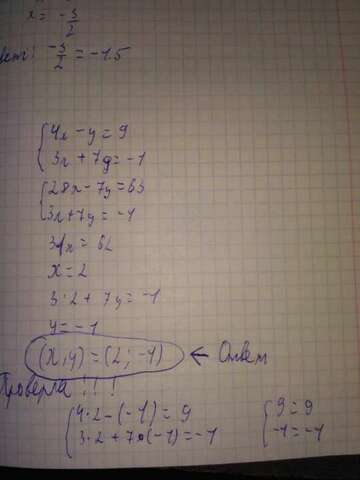 x = -3/2
вет: -3/2 = -1.5
{4x - y = 9
3x + 7y = -1
{28x - 7y = 63
3x + 7y = -1
31x = 62
x = 2
3·2 + 7y = -1
y = -1
(x,y) = (2; -1) ← Ответ
Проверка!!!
{4·2 - (-1) = 9 {9 = 9
3·2 + 7·(-1) = -1 -1 = -1